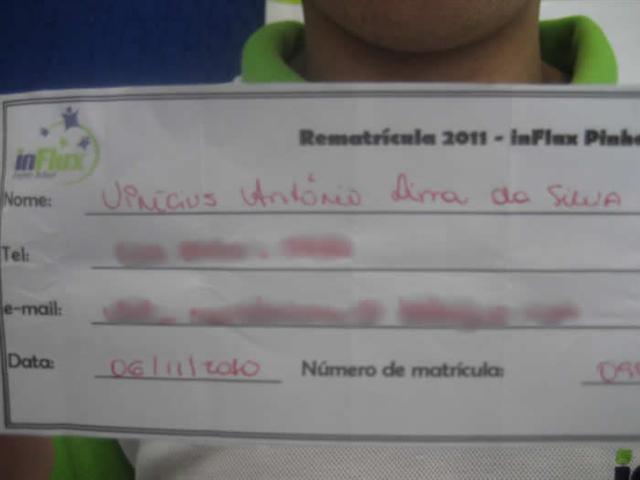 inFlux
Rematrícula 2011 - inFlux Pinh
Nome: Vinicius Antônio Lima da Silva
Tel:
e-mail:
Data: 06/11/2010 Número de matrícula: 09